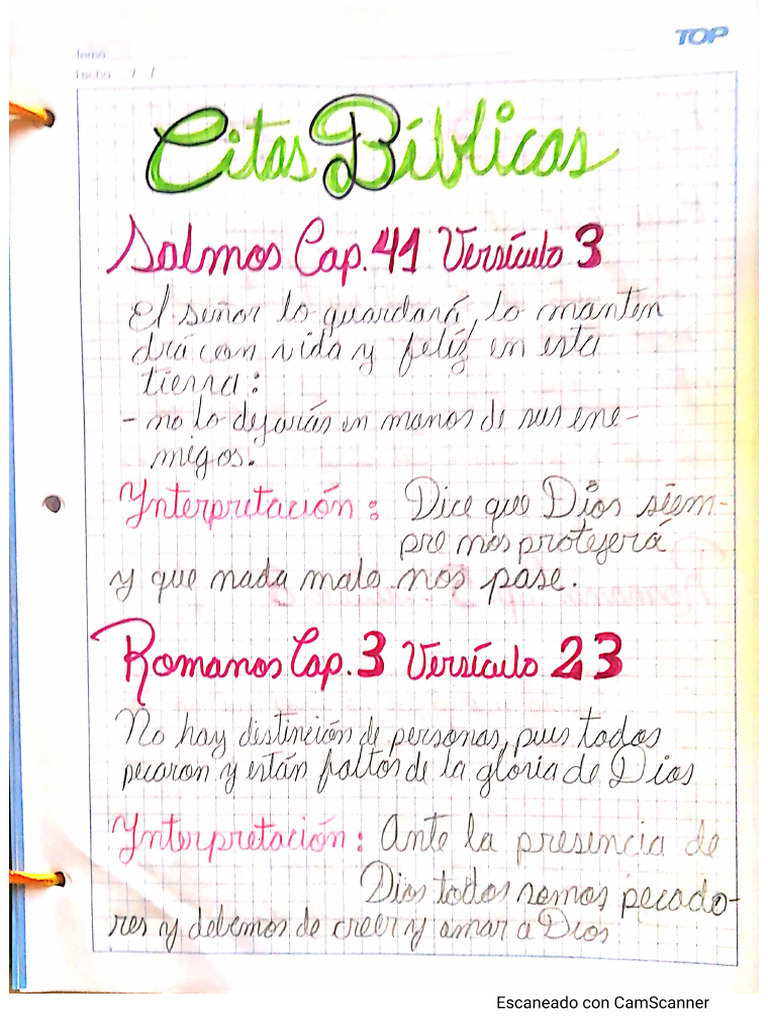 TOP
Tema:
Fecha: / /
Citas Bíblicas
Salmos Cap. 41 Versículo 3
El señor lo guardará, lo manten
drá con vida y feliz en esta
tierra:
- no lo dejarás en manos de sus ene-
migos.
Ynterpretación: Dice que Dios siem-
pre nos protejerá
y que nada malo nos pase.
Romanos Cap. 3 Versículo 23
No hay distinción de personas, pues todos
pecaron y están faltos de la gloria de Dios
Ynterpretación: Ante la presencia de
Dios todos somos pecado-
res y debemos de creer y amar a Dios
Escaneado con CamScanner